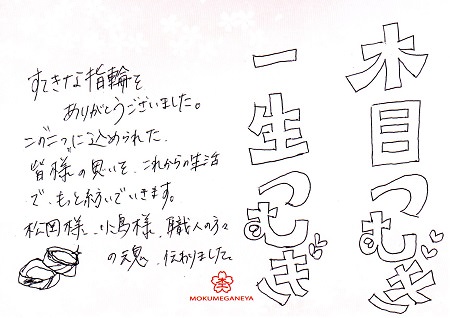 木目つむぎ
一生つむぎ
すてきな指輪を
ありがとうございました。
この二つに込められた、
皆様の思いを、これからの生活
で、もっと紡いでいきます。
松岡様、小島様、職人の方々
の魂、伝わりました。
MOKUMEGANEYA